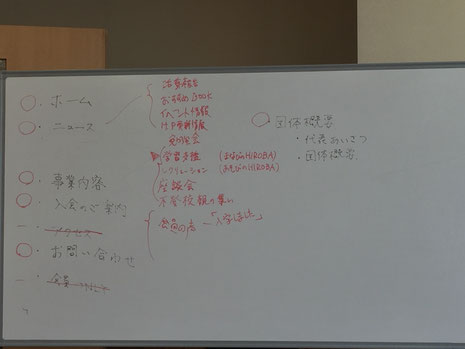 ・ホーム
・ニュース
・事業内容
・入会のご案内
・アクセス
・お問い合わせ
・会員
活動報告
おすすめ
イベント情報
HP更新情報
学習支援 (まなびのHIROBA)
レクリエーション (あそびのHIROBA)
座談会
不登校親の集い
会員の声
・団体概要
・代表あいさつ
・団体概要